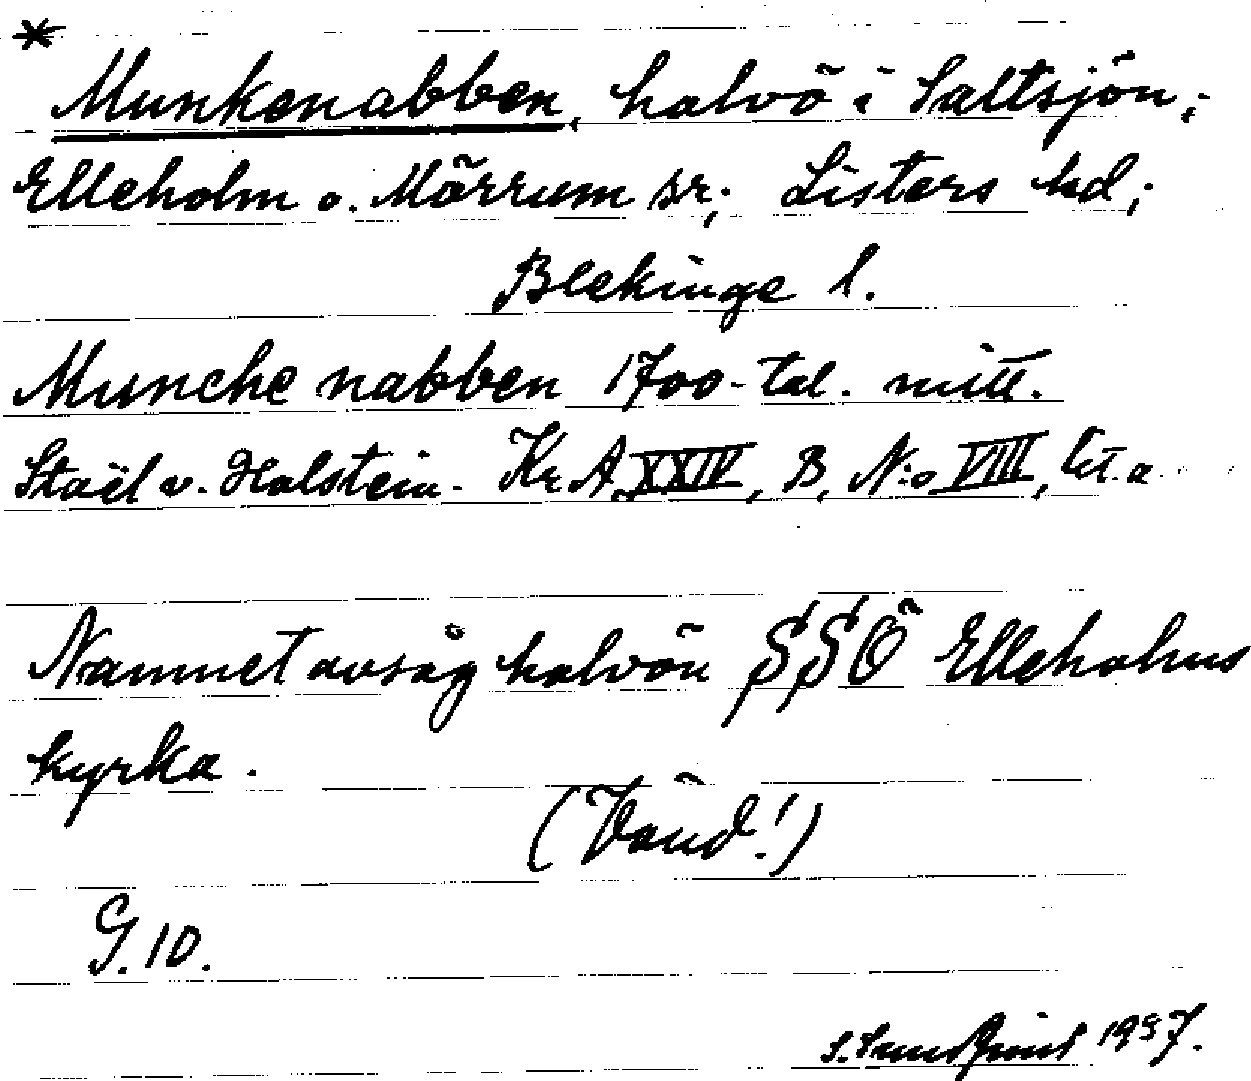 *
Munkenabben, halvö i Saltsjön;
Elleholm o. Mörrum sr; Listers hd;
Blekinge l.
Munche nabben 1700-tal. mitt.
Staël v. Holstein. Kr A, XXIV, B, N:o VIII, Lit. a
Namnet avsåg halvön SSÖ Elleholms
kyrka.
(Vänd!)
G. 10.
1937.